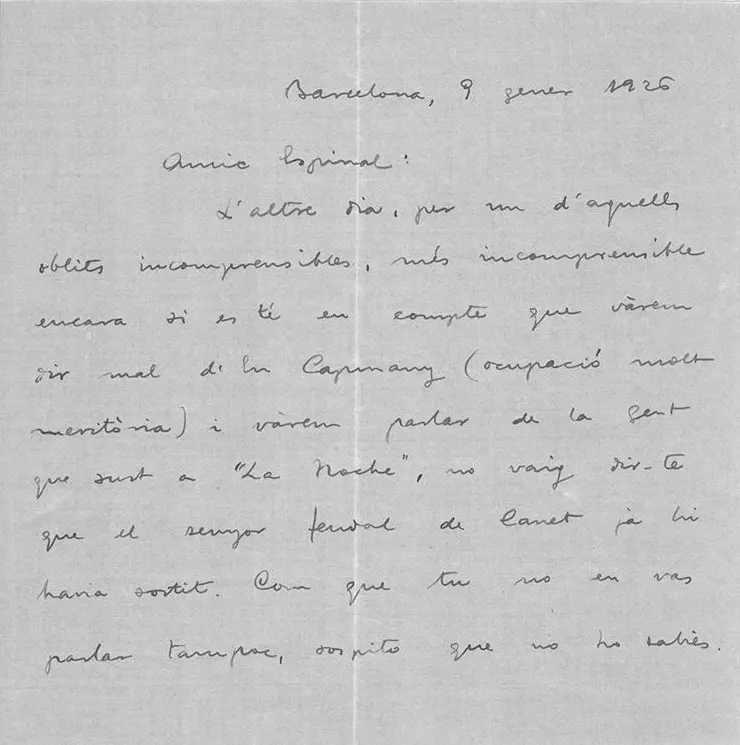 Barcelona, 9 gener 1926
Amic Espinal:
L'altre dia, per un d'aquells
oblits incomprensibles, més incomprensible
encara si es té en compte que vàrem
dir mal d'En Capmany (ocupació molt
meritòria) i vàrem parlar de la gent
que surt a "La Noche", no vaig dir-te
que el senyor feudal de Canet ja hi
havia sortit. Com que tu no en vas
parlar tampoc, sospito que no ho sabies.